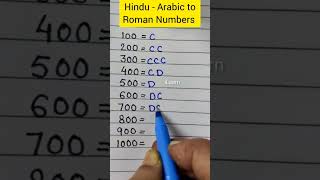 Hindu - Arabic to
Roman Numbers
100 = C
200 = CC
300 = CCC
400 = CD
500 = D
600 = DC
700 = DC
800 =
900 =
1000 =